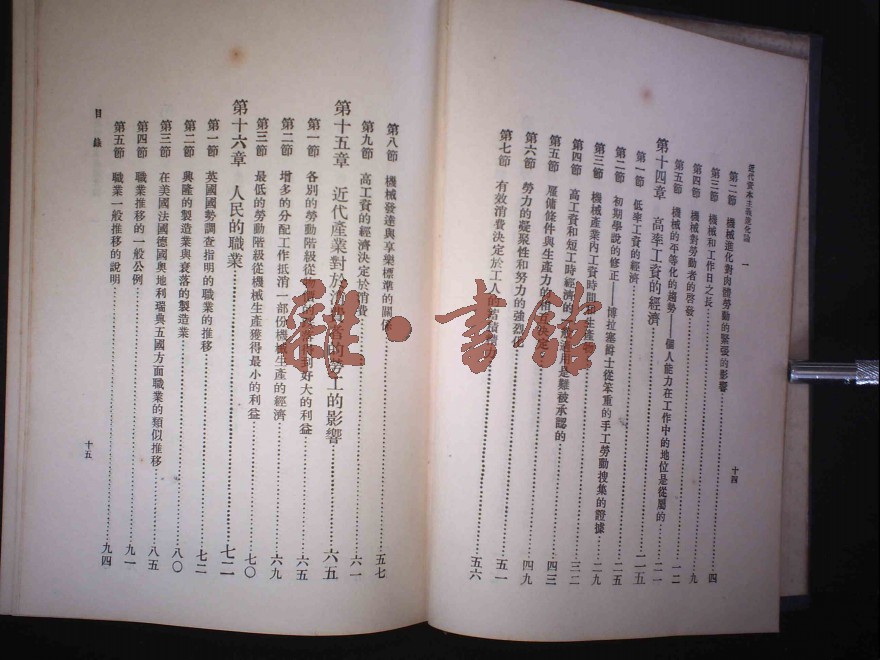 近代資本主義進化論 一
十四
第二節 機械進化對肉體勞動的緊張的影響 四
第三節 機械和工作日之長 九
第四節 機械對勞動者的啓發 一二
第五節 機械的平等化的趨勢——個人能力在工作中的地位是從屬的 二一
第十四章 高率工資的經濟 二五
第一節 低率工資的經濟 二五
第二節 初期學說的修正——博拉塞爵士從笨重的手工勞動搜集的證據 二九
第三節 機械產業內工資時間和生產 三二
第四節 高工資和短工時經濟的 適用是難被承認的 四三
第五節 雇傭條件與生產力的 決定 四九
第六節 勞力的凝聚性和努力的強烈化 五一
第七節 有效消費決定於工人的 五六
第八節 機械發達與享樂標準的關係 五七
第九節 高工資的經濟決定於消費 六一
第十五章 近代產業對於消費者的勞工的影響 六五
第一節 各別的勞動階級從 好大的利益 六五
第二節 增多的分配工作抵消一部份機械生產的經濟 六九
第三節 最低的勞動階級從機械生產獲得最小的利益 七〇
第十六章 人民的職業 七二
第一節 英國國勢調查指明的職業的推移 七二
第二節 興隆的製造業與衰落的製造業 八〇
第三節 在美國法國德國奧地利瑞典五國方面職業的類似推移 八五
第四節 職業推移的一般公例 九一
第五節 職業一般推移的說明 九四
目錄
十五
雜·書館